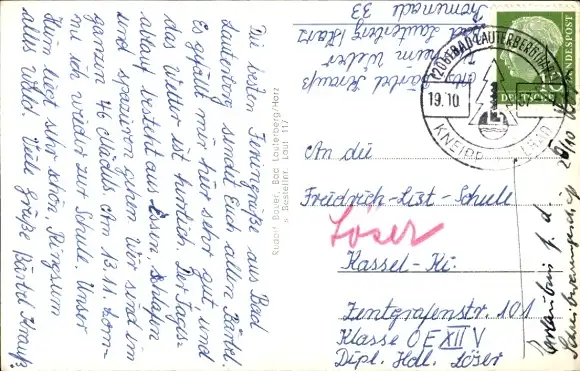 Die besten Feriengrüße aus Bad
Lauterberg sendet Euch allen Bärbel.
Es gefällt mir hier sehr gut und
das Wetter ist herrlich. Der Tages-
ablauf besteht aus Essen, Schlafen
und spazieren gehen. Wir sind im
ganzen 46 Mädels. Am 13.11. kom-
me ich wieder zur Schule. Unser
Heim liegt sehr schön. Ringsum
alles Wald. Viele Grüße Bärbel Krauß
Rudolf Bauer, Bad Lauterberg/Harz
Bestellnr. Laut 117
Bärbel Krauß
Bad Lauterberg/Harz
Promenade 33
(20b) BAD LAUTERBERG (HARZ)
19.10.
KNEIPP
DEUTSCHE BUNDESPOST
10
An die
Friedrich-List-Schule
Löser
Kassel-Ki.
Zentgrafenstr. 101
Klasse OE XII V
Dipl. Hdl. Löser